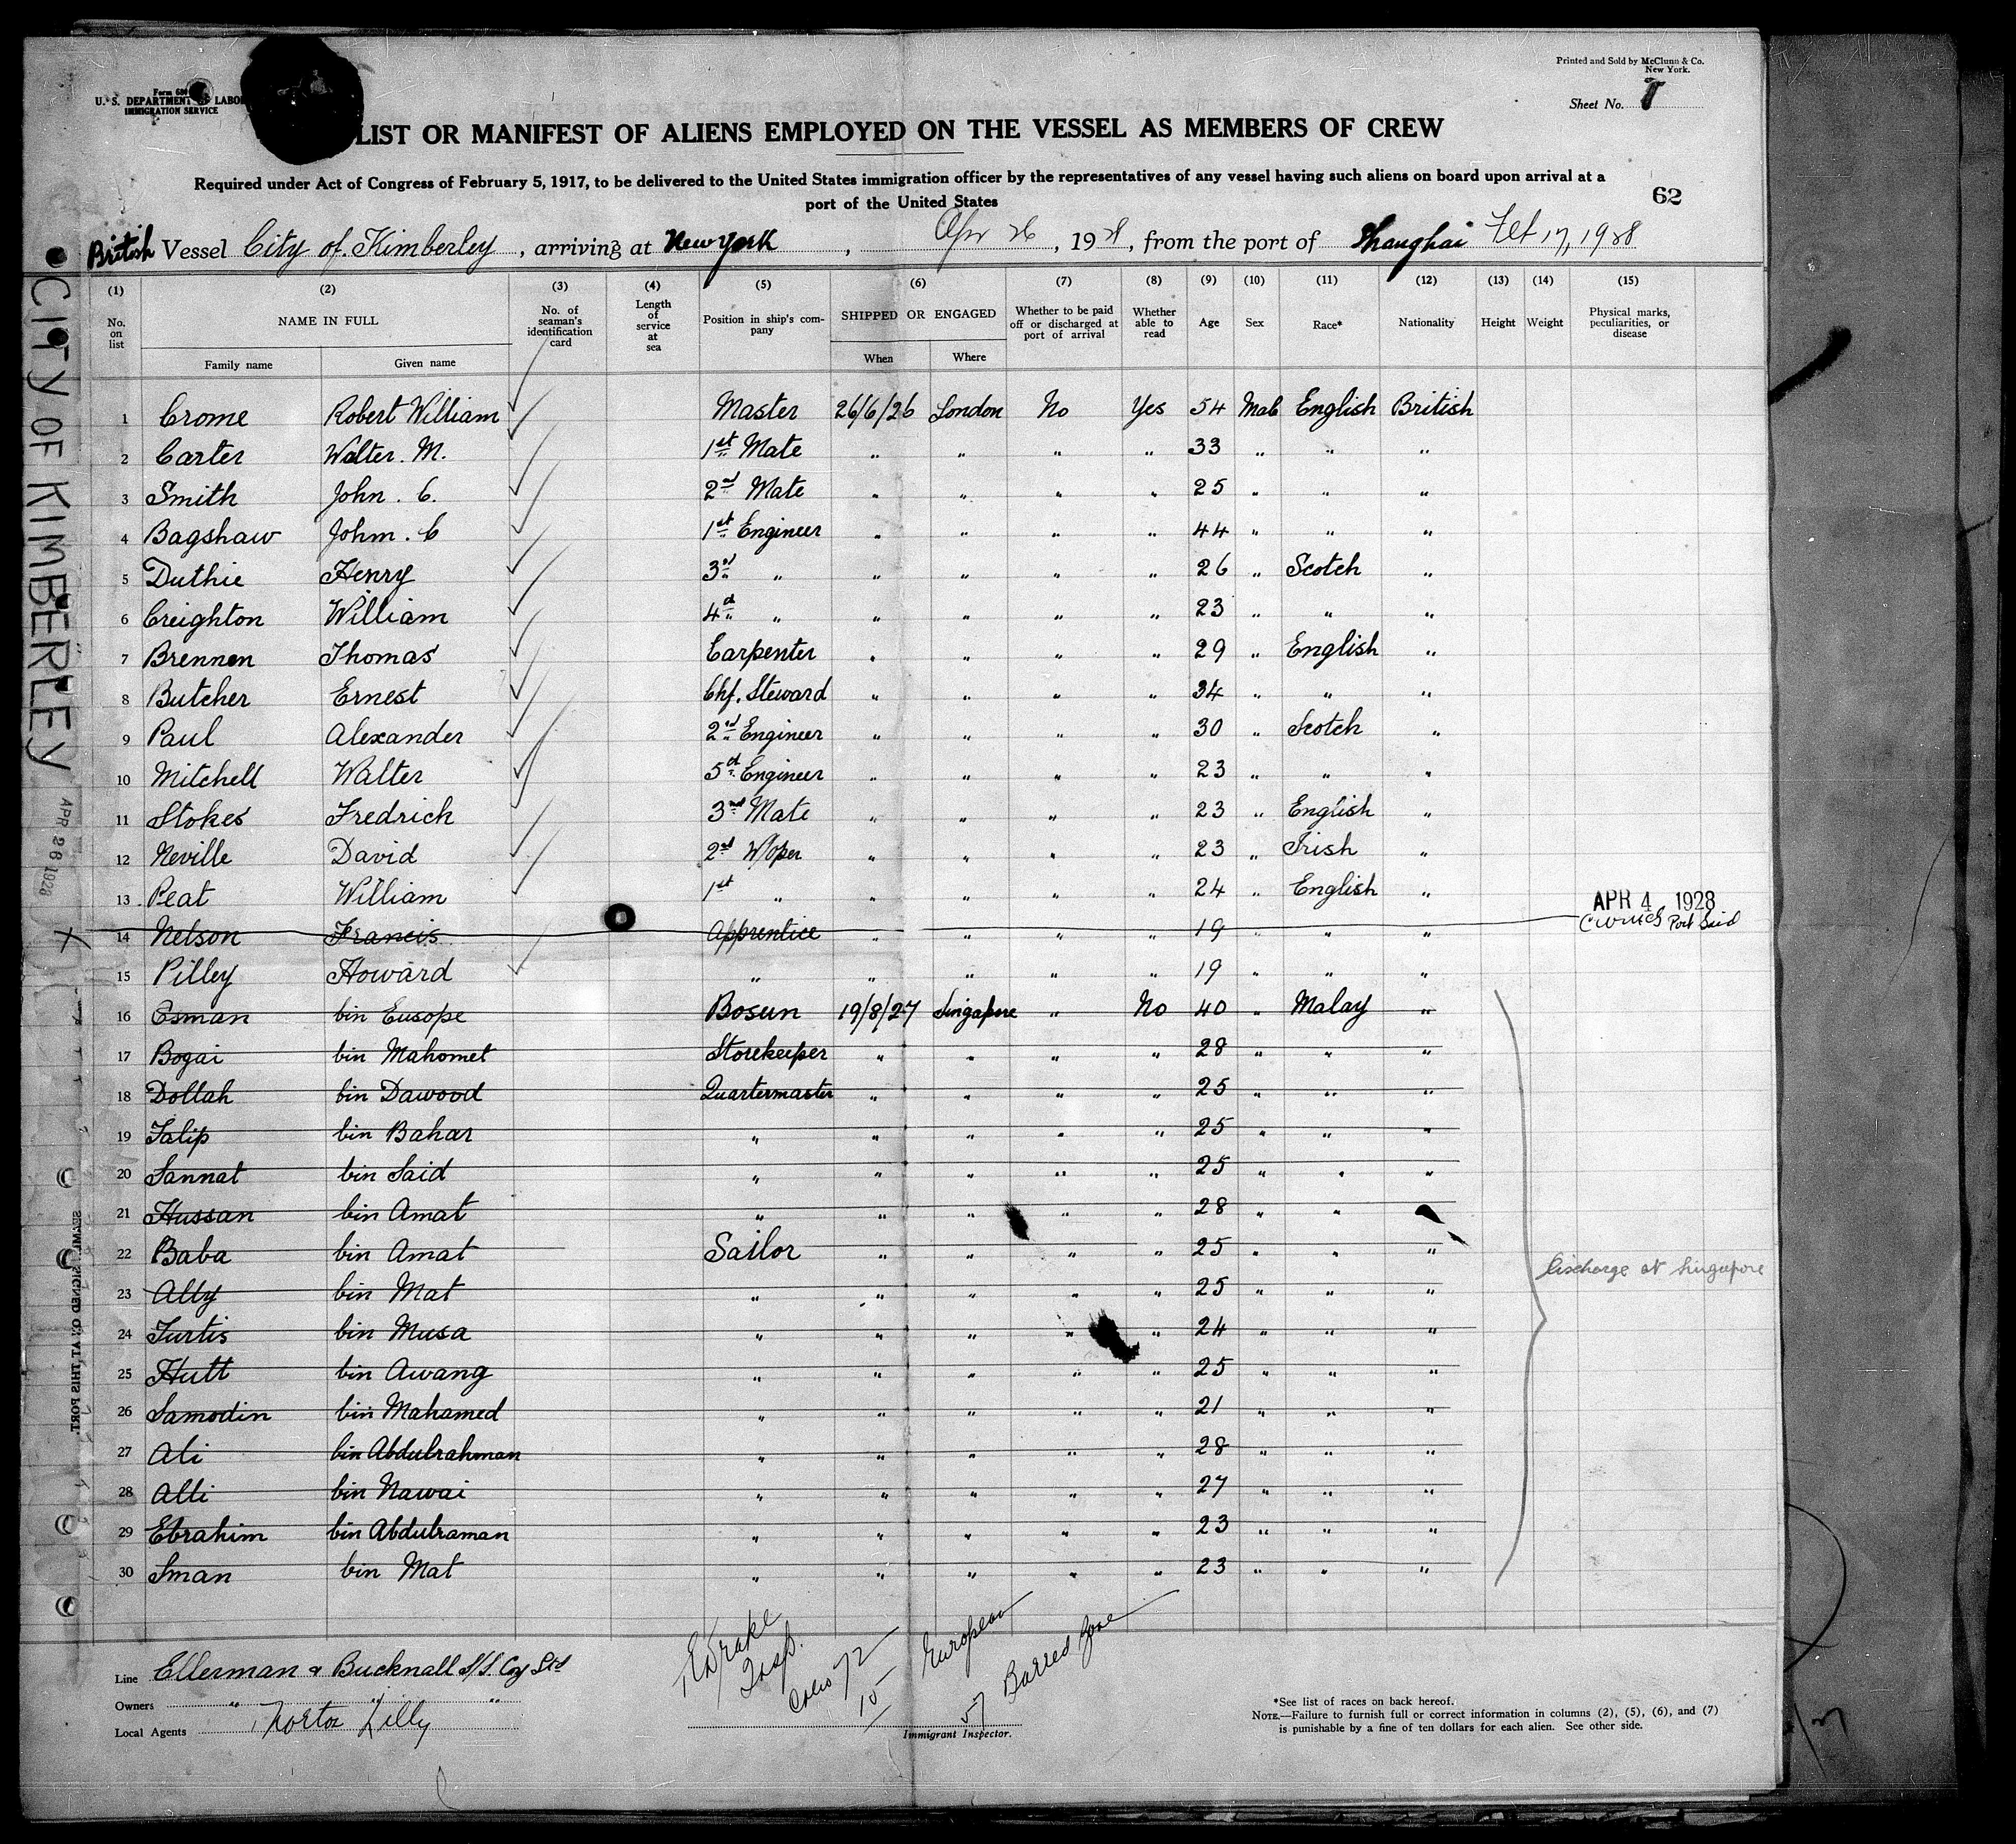 Form 680
U. S. DEPARTMENT OF LABOR
IMMIGRATION SERVICE
Printed and Sold by McClunn & Co.
New York.
Sheet No.
LIST OR MANIFEST OF ALIENS EMPLOYED ON THE VESSEL AS MEMBERS OF CREW
Required under Act of Congress of February 5, 1917, to be delivered to the United States immigration officer by the representatives of any vessel having such aliens on board upon arrival at a
port of the United States
62
British Vessel City of Kimberley, arriving at New York, Apr 26, 1928, from the port of Shanghai Feb 17, 1928
(1) (2) (3) (4) (5) (6) (7) (8) (9) (10) (11) (12) (13) (14) (15)
No. on list NAME IN FULL No. of seaman's identification card Length of service at sea Position in ship's company SHIPPED OR ENGAGED Whether to be paid off or discharged at port of arrival Whether able to read Age Sex Race* Nationality Height Weight Physical marks, peculiarities, or disease
Family name Given name When Where
1 Crome Robert William Master 26/6/26 London No Yes 54 Male English British
2 Carter Walter. M. 1st Mate " " " " 33 " " "
3 Smith John. C. 2nd Mate " " " " 25 " " "
4 Bagshaw John. C 1st Engineer " " " " 44 " " "
5 Duthie Henry 3rd " " " " " 26 " Scotch "
6 Creighton William 4d " " " " " 23 " " "
7 Brennen Thomas Carpenter " " " " 29 " English "
8 Butcher Ernest Chf. Steward " " " " 34 " " "
9 Paul Alexander 2nd Engineer " " " " 30 " Scotch "
10 Mitchell Walter 5d Engineer " " " " 23 " " "
11 Stokes Fredrich 3rd Mate " " " " 23 " English "
12 Neville David 2nd W/Oper " " " " 23 " Irish "
13 Peat William 1st " " " " " 24 " English "
APR 4 1928
14 Nelson Francis Apprentice " " " " 19 " " " Port Said
15 Pilley Howard " " " " " 19 " " "
16 Osman bin Eusope Bosun 19/8/27 Singapore " No 40 " Malay "
17 Bogai bin Mahomet Storekeeper " " " " 28 " " "
18 Dollah bin Dawood Quartermaster " " " " 25 " " "
19 Talip bin Bahar " " " " " 25 " " "
20 Sannat bin Said " " " " " 25 " " "
21 Hussan bin Amat " " " " " 28 " "
22 Baba bin Amat Sailor " " " " 25 " " "
23 Ally bin Mat " " " " " 25 " " "
Discharge at Singapore
24 Turtis bin Musa " " " " " 24 " " "
25 Hutt bin Awang " " " " " 25 " " "
26 Samodin bin Mahamed " " " " " 21 " " "
27 Ali bin Abdulrahman " " " " " 28 " " "
28 Alli bin Nawai " " " " " 27 " " "
29 Ebrahim bin Abdulraman " " " " " 23 " " "
30 Sman bin Mat " " " " " 23 " " "
Line Ellerman & Bucknall S/S. Coy Ltd
Owners " " "
Local Agents Norton Lilly
Drake
Insp.
72
15 European
57 Barred Zone
Immigrant Inspector.
*See list of races on back hereof.
NOTE.—Failure to furnish full or correct information in columns (2), (5), (6), and (7)
is punishable by a fine of ten dollars for each alien. See other side.
CITY OF KIMBERLEY
APR 26 1928
SEAMEN SIGNED ON AT THIS PORT